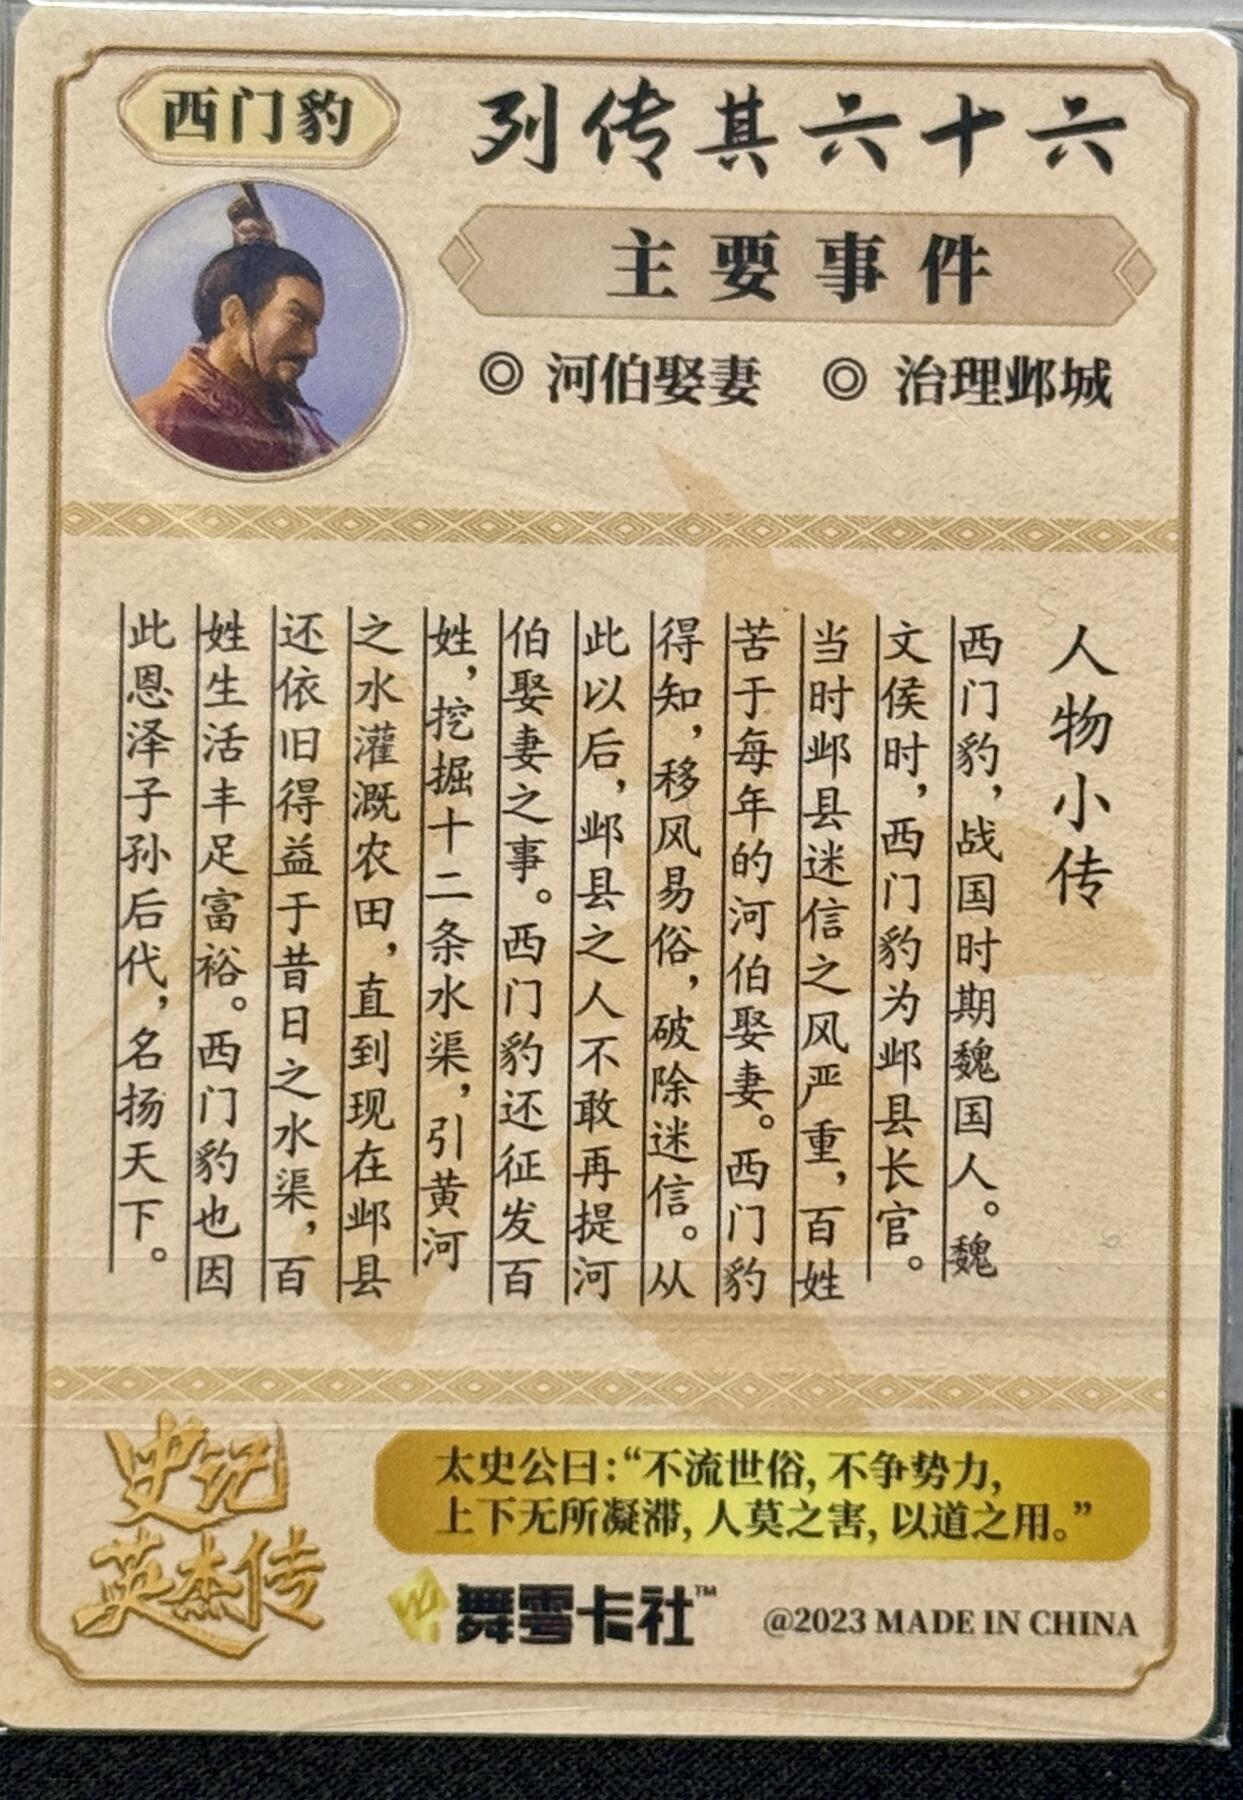 西门豹
列传其六十六
主要事件
◎ 河伯娶妻 ◎ 治理邺城
人物小传
西门豹，战国时期魏国人。魏
文侯时，西门豹为邺县长官。
当时邺县迷信之风严重，百姓
苦于每年的河伯娶妻。西门豹
得知，移风易俗，破除迷信。从
此以后，邺县之人不敢再提河
伯娶妻之事。西门豹还征发百
姓，挖掘十二条水渠，引黄河
之水灌溉农田，直到现在邺县
还依旧得益于昔日之水渠，百
姓生活丰足富裕。西门豹也因
此恩泽子孙后代，名扬天下。
史记
英杰传
太史公曰：“不流世俗，不争势力，
上下无所凝滞，人莫之害，以道之用。”
舞雩卡社™
@2023 MADE IN CHINA